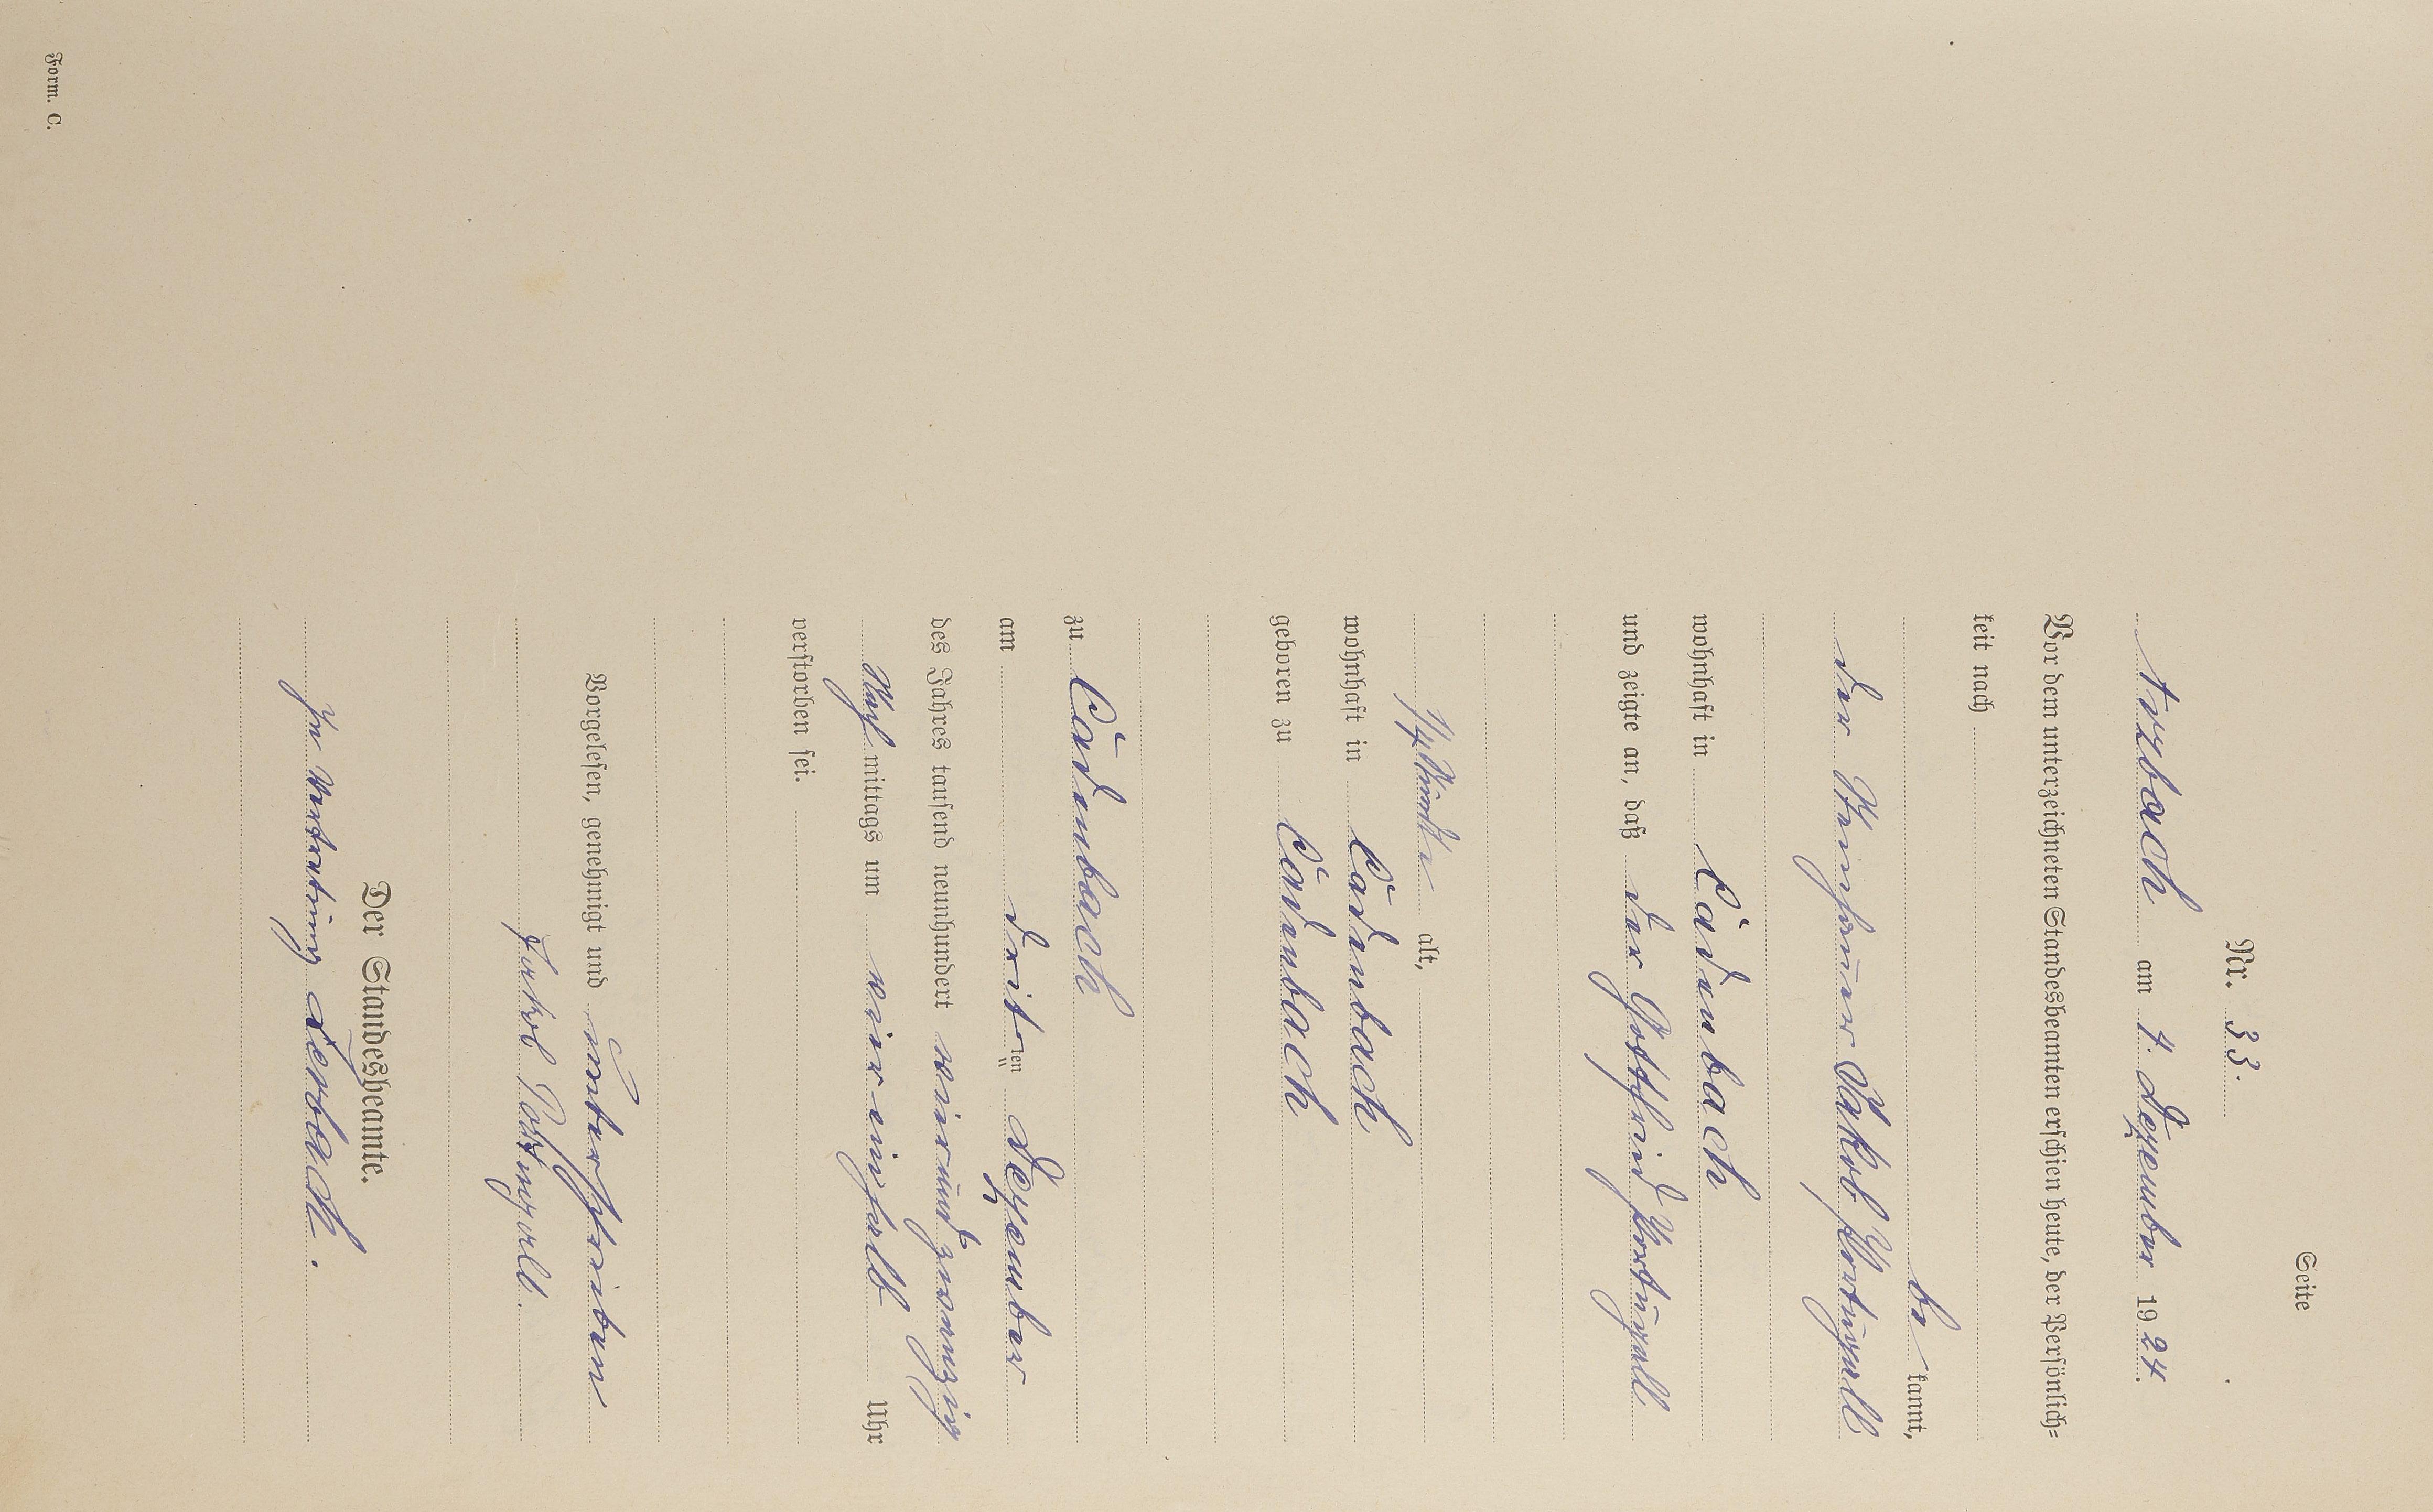 Seite
Nr. 33.
Arzbach am 4. Dezember 1924.
Vor dem unterzeichneten Standesbeamten erschien heute, der Persönlich=
keit nach
be kannt,
der Jakob Portugall
wohnhaft in Cadenbach
und zeigte an, daß der Gottfried Portugall
alt,
wohnhaft in Cadenbach
geboren zu Cadenbach
zu Cadenbach
am dritten Dezember
des Jahres tausend neunhundert vierundzwanzig
Nach mittags um vier einhalb Uhr
verstorben sei.
Vorgelesen, genehmigt und unterschrieben
Jakob Portugall.
Der Standesbeamte.
In Vertretung Derbach.
Form. C.